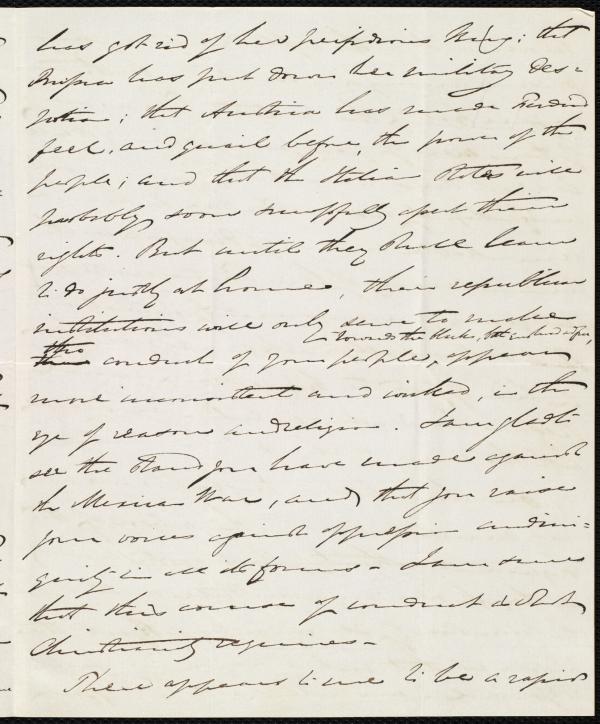 has got rid of her perfidious King; that
Prussia has put down her military des=
potism; that Austria has made
feel, and quail before, the power of the
people; and that the Italian States will
probably soon successfully assert their
rights. But until they shall learn
to do justly at home, their republican
institutions will only serve to make
towards the blacks, both enslaved and free,
the conduct of your people, appear
more inconsistent and wicked, in the
eye of reason and religion. I am glad to
see the stand you have made against
the Mexican War, and that you raise
your voices against oppression and ini=
quity in all its forms - I am sure
that this course of conduct is what
Christianity requires -
There appears to me to be a rapid